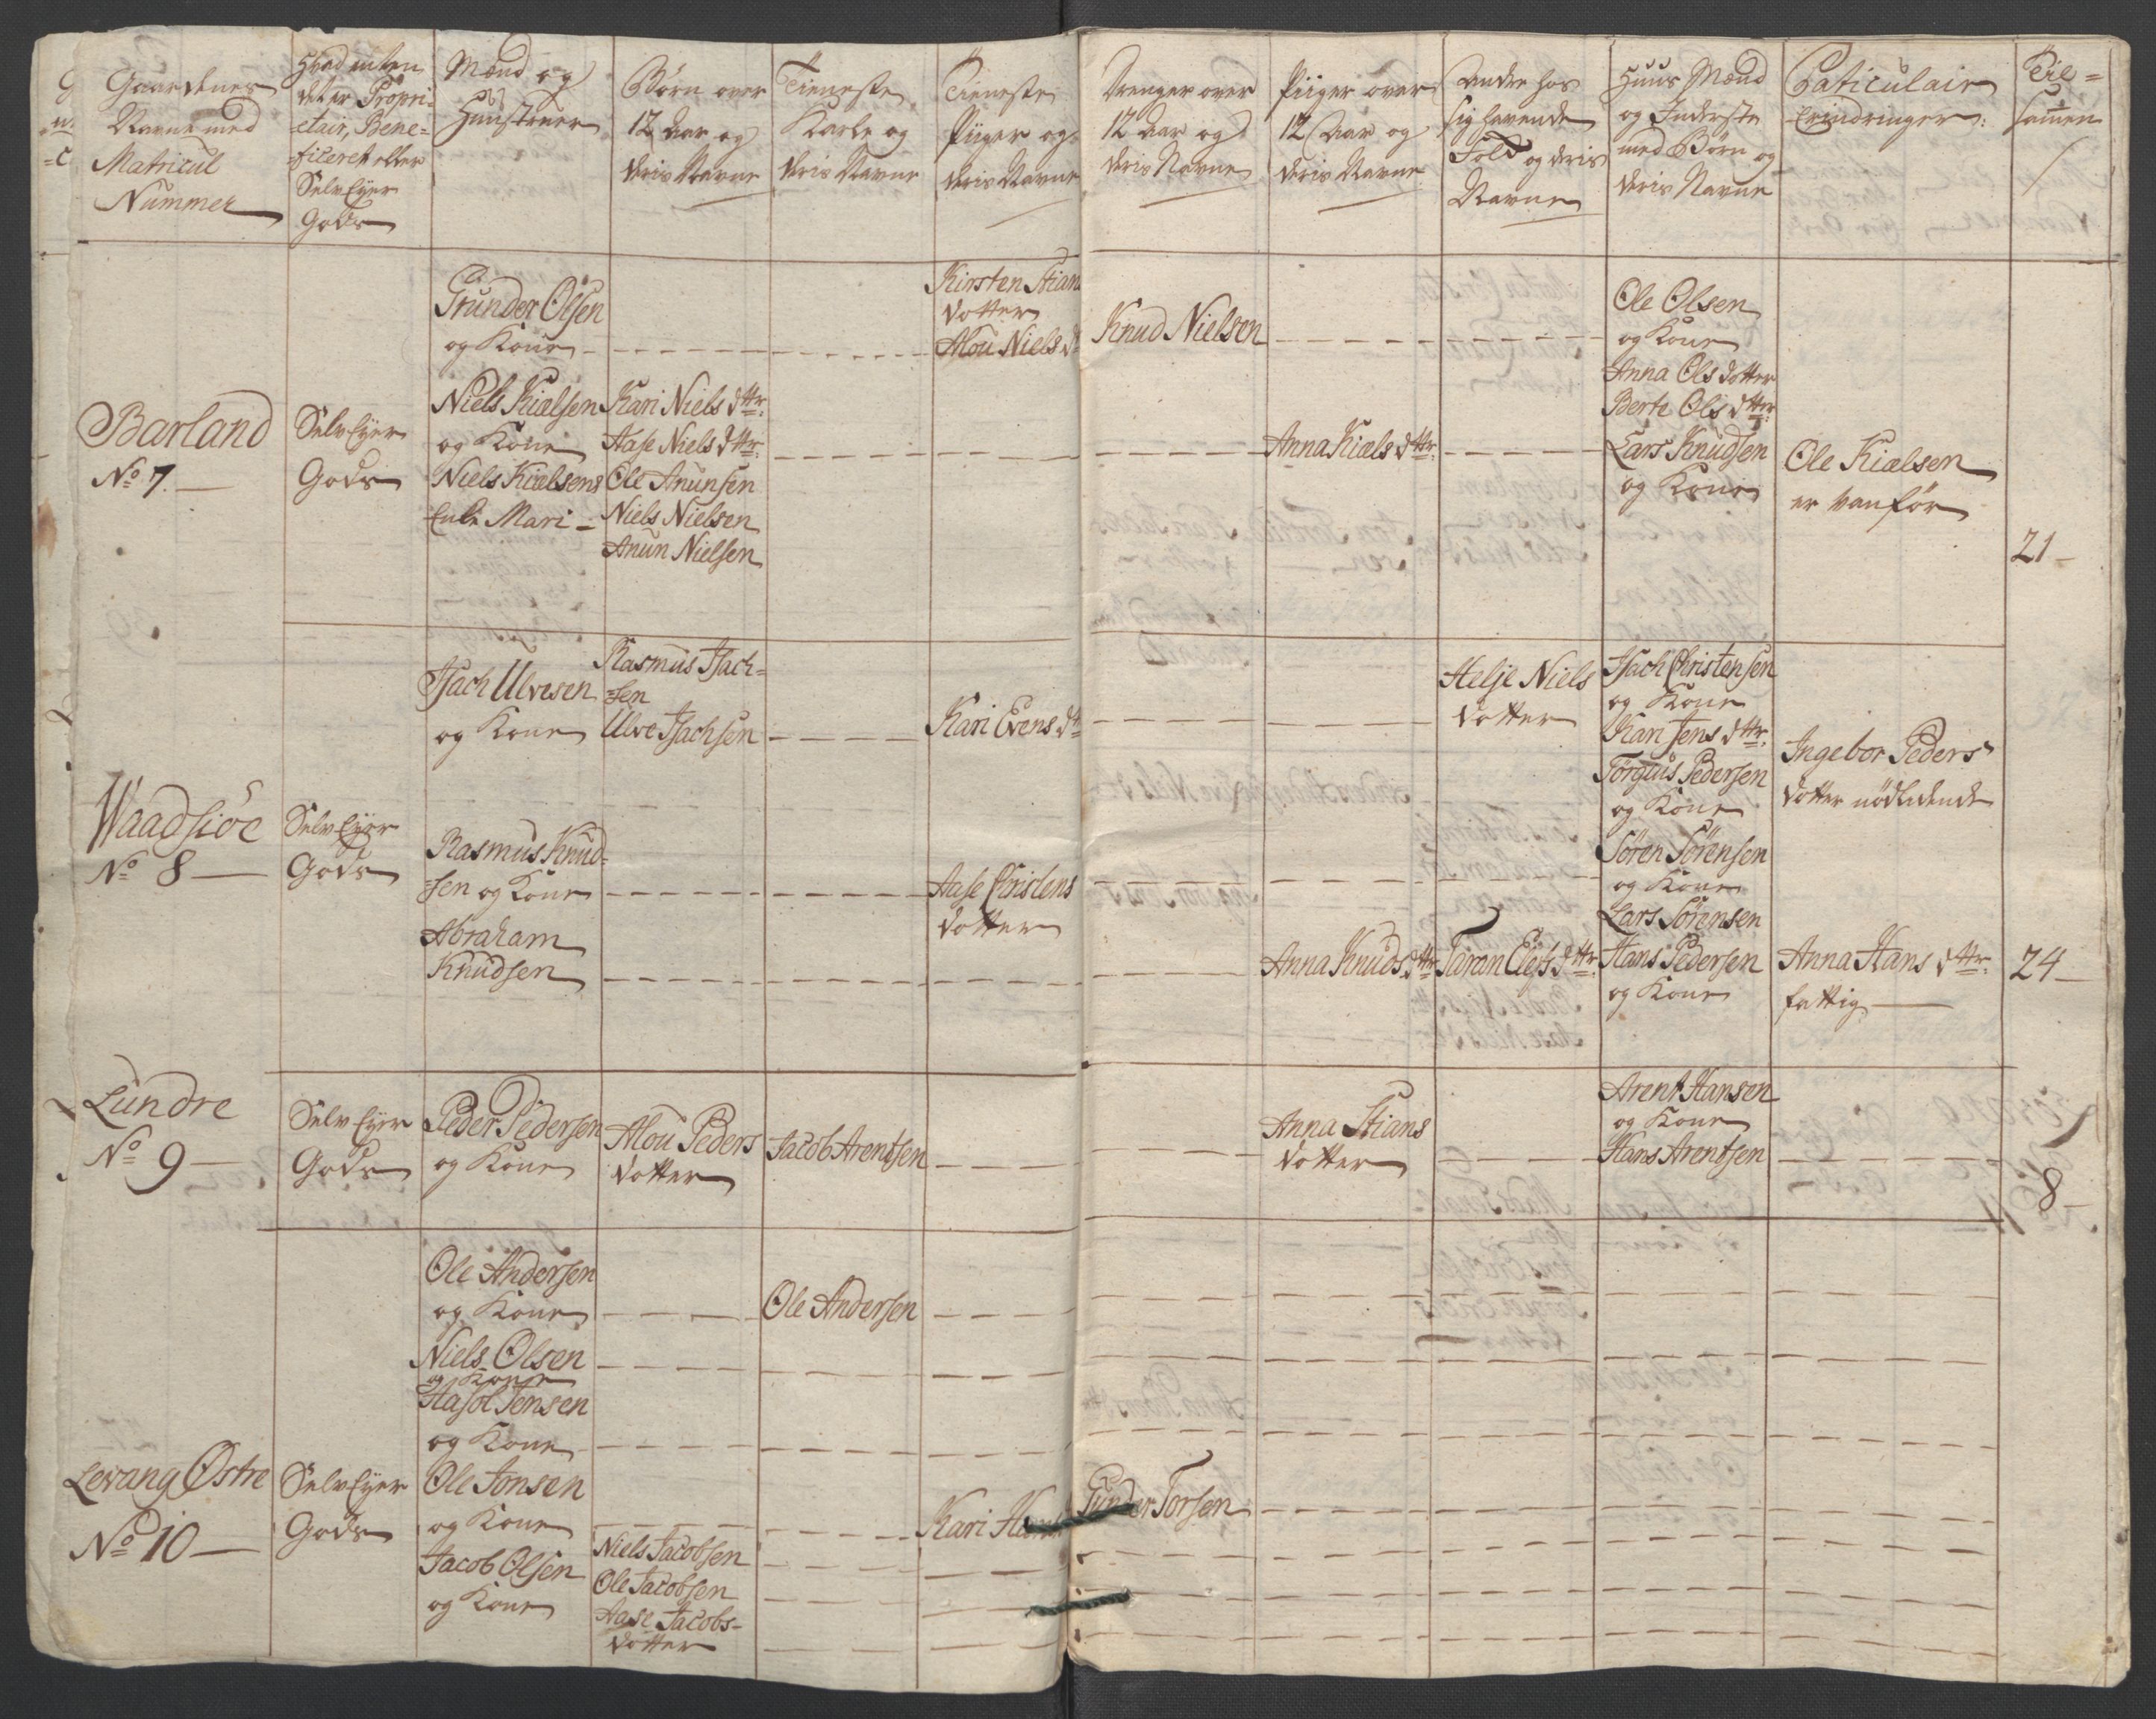 Gaardenes
Navne med
Matricul
Nummer
Hvad enten
det er Propri-
etair, Bene-
ficeret eller
SelvEyer
Gods
Mænd og
Hustruer
Børn over
12 Aar og
deris Navne
Tieneste
Karle og
deris Navne
Tieneste
Piiger og
deris Navne
Drenger over
12 Aar og
deris Navne
Piiger over
12 Aar og
deris Navne
Andre hos
sig havende
Folk og deris
Navne
Huus Mænd
og Inderste
med Børn og
deris Navne
Paticulair
Erindringer
Til=
sammen
Barland
No 7.
SelvEyer
Gods
Gunder Olsen
og Kone
Niels Kielsen
og Kone
Niels Kielsens
Enke Mari
Kari Niels dttr.
Aase Niels dttr.
Ole Anunsen
Niels Nielsen
Anun Nielsen
Kirsten Stians
dotter
Alou Niels d
Knud Nielsen
Anna Kiels dttr.
Ole Olsen
og Kone
Anna Ols dotter
Berte Ols dttr
Lars Knudsen
og Kone
Ole Kielsen
er vanför
21
Waadsiöe
No 8
SelvEyer
Gods
Isach Ulvesen
og Kone
Rasmus Knud-
sen og Kone
Abraham
Knudsen
Rasmus Isach=
=sen
Ulve Isachsen
Kari Evens dtt
Aase Christens
dotter
Anna Knuds dttr
Helje Niels
dotter
Taran Elefs dttr.
Isach Christensen
og Kone
Kari Jens dttr.
Torguus Pedersen
og Kone
Sören Sörensen
og Kone
Lars Sörensen
Hans Pedersen
og Kone
Ingebor Peders
dotter nödlidende
Anna Hans dttr.
fattig
24
Lundre
No 9
SelvEyer
Gods
Peder Pedersen
og Kone
Alou Peders
dotter
Jacob Arentsen
Anna Stians
dotter
Arent Hansen
og Kone
Hans Arentsen
8
Levang Østre
No 10
SelvEyer
Gods
Ole Andersen
og Kone
Niels Olsen
og Kone
Jensen
og Kone
Ole Jonsen
og Kone
Jacob Olsen
og Kone
Niels Jacobsen
Ole Jacobsen
Aase Jacobs-
dotter
Ole Andersen
Kari
Gunder Torsen